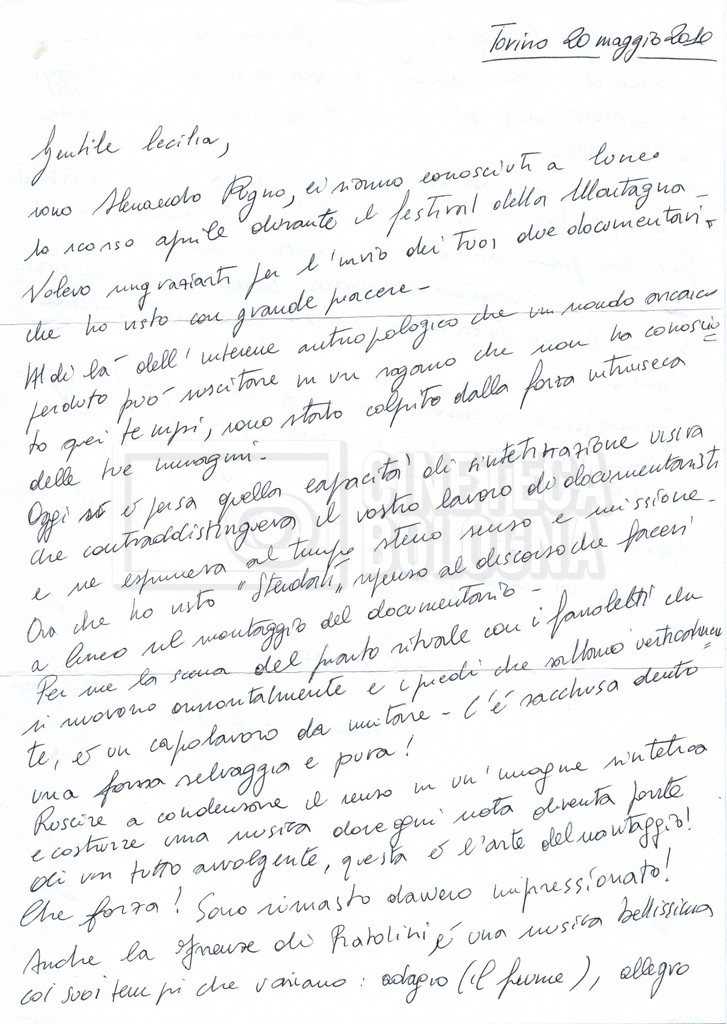 Torino 20 maggio 2010
Gentile Cecilia,
sono Alessandro Pugno, ci siamo conosciuti a Cuneo
lo scorso aprile durante il festival della Montagna -
Volevo ringraziarti per l'invio dei tuoi due documentari
che ho visto con grande piacere -
Al di là dell'interesse antropologico che un mondo arcaico
perduto può suscitare in un ragazzo che non ha conosciu
to quei tempi, sono stato colpito dalla forza intrinseca
delle tue immagini -
Oggi si è persa quella capacità di sintetizzazione visiva
che contraddistingueva il vostro lavoro di documentaristi
e ne esprimeva al tempo stesso senso e missione -
Ora che ho visto "Stendalì" ripenso al discorso che facevi
a Cuneo sul montaggio del documentario -
Per me la scena del pianto rituale con i fazzoletti che
si muovono orizzontalmente e i piedi che saltano verticalmen
te, è un capolavoro da imitare - C'è racchiusa dentro
una forza selvaggia e pura!
Riuscire a condensare il senso in un'imagine sintetica
e costruire una musica dove ogni nota diventa parte
di un tutto avvolgente, questa è l'arte del montaggio!
Che forza! Sono rimasto davvero impressionato!
Anche la Firenze di Pratolini, è una musica bellissima
coi suoi tempi che variano: adagio (il fiume), allegro
CINETECA
BOLOGNA